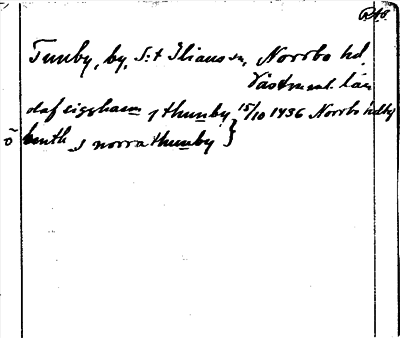 RAö.
Tunby, by, S:t Ilians sn, Norrbo hd.
Västmanl. län
olaf sigghason j thunby } 15/10 1436 Norrbo hdbf
õ benth j norra thunby }